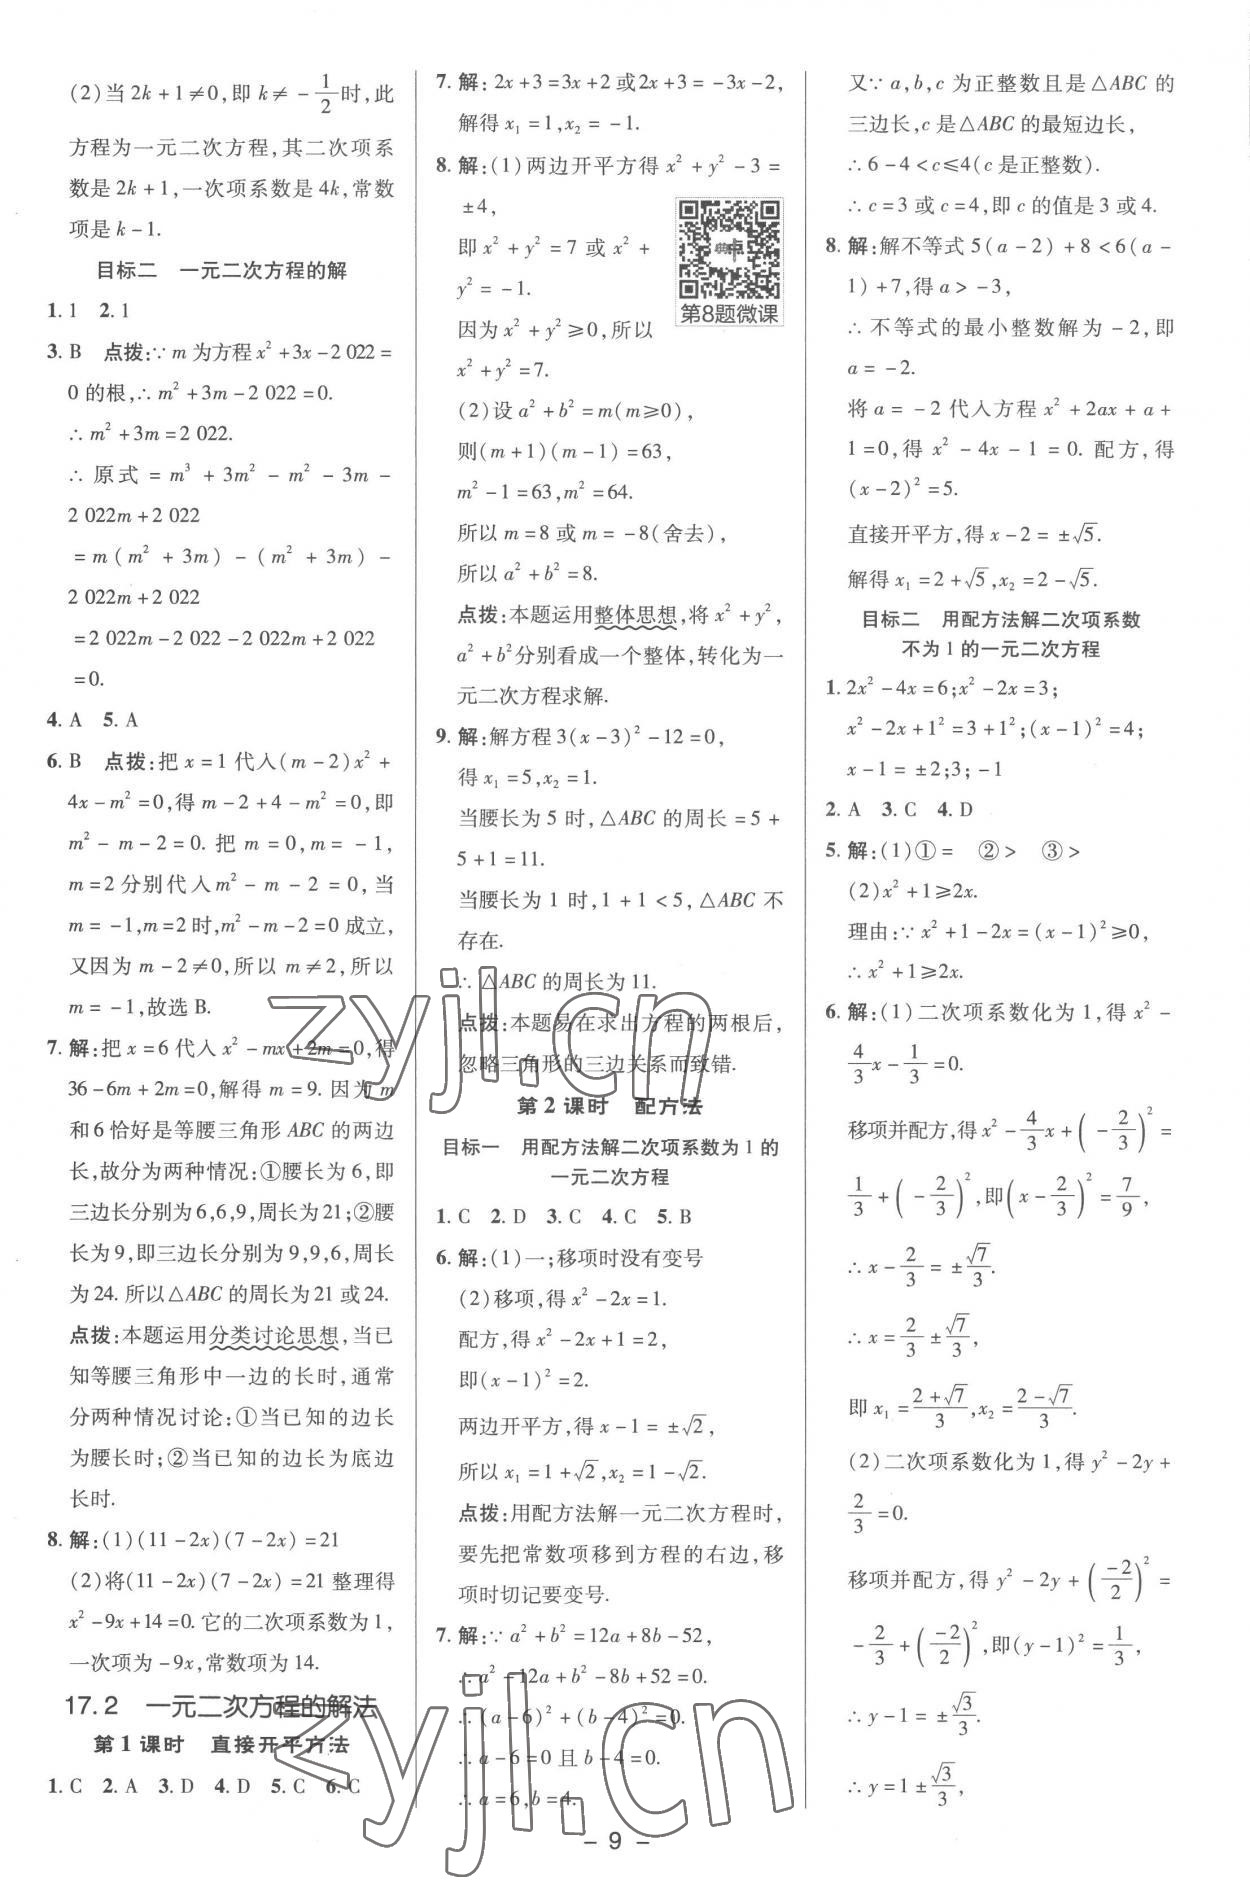 (2)当2k+1≠0,即k≠-1/2时,此
方程为一元二次方程,其二次项系
数是2k+1,一次项系数是4k,常数
项是k-1.
目标二 一元二次方程的解
1. 1 2. 1
3. B 点拨:∵m为方程x²+3x-2 022=
0的根,∴m²+3m-2 022=0.
∴m²+3m=2 022.
∴原式=m³+3m²-m²-3m-
2 022m+2 022
=m(m²+3m)-(m²+3m)-
2 022m+2 022
=2 022m-2 022-2 022m+2 022
=0.
4. A 5. A
6. B 点拨:把x=1代入(m-2)x²+
4x-m²=0,得m-2+4-m²=0,即
m²-m-2=0. 把m=0,m=-1,
m=2分别代入m²-m-2=0,当
m=-1,m=2时,m²-m-2=0成立,
又因为m-2≠0,所以m≠2,所以
m=-1,故选B.
7. 解:把x=6代入x²-mx+2m=0,得
36-6m+2m=0,解得m=9. 因为m
和6恰好是等腰三角形ABC的两边
长,故分为两种情况:①腰长为6,即
三边长分别为6,6,9,周长为21;②腰
长为9,即三边长分别为9,9,6,周长
为24. 所以△ABC的周长为21或24.
点拨:本题运用分类讨论思想,当已
知等腰三角形中一边的长时,通常
分两种情况讨论:①当已知的边长
为腰长时;②当已知的边长为底边
长时.
8. 解:(1)(11-2x)(7-2x)=21
(2)将(11-2x)(7-2x)=21整理得
x²-9x+14=0. 它的二次项系数为1,
一次项为-9x,常数项为14.
17.2 一元二次方程的解法
第1课时 直接开平方法
1. C 2. A 3. D 4. D 5. C 6. C
7. 解:2x+3=3x+2或2x+3=-3x-2,
解得x₁=1,x₂=-1.
8. 解:(1)两边开平方得x²+y²-3=
±4,
即x²+y²=7或x²+
y²=-1.
因为x²+y²≥0,所以
x²+y²=7.
第8题微课
(2)设a²+b²=m(m≥0),
则(m+1)(m-1)=63,
m²-1=63,m²=64.
所以m=8或m=-8(舍去),
所以a²+b²=8.
点拨:本题运用整体思想,将x²+y²,
a²+b²分别看成一个整体,转化为一
元二次方程求解.
9. 解:解方程3(x-3)²-12=0,
得x₁=5,x₂=1.
当腰长为5时,△ABC的周长=5+
5+1=11.
当腰长为1时,1+1<5,△ABC不
存在.
∴△ABC的周长为11.
点拨:本题易在求出方程的两根后,
忽略三角形的三边关系而致错.
第2课时 配方法
目标一 用配方法解二次项系数为1的
一元二次方程
1. C 2. D 3. C 4. C 5. B
6. 解:(1)一;移项时没有变号
(2)移项,得x²-2x=1.
配方,得x²-2x+1=2,
即(x-1)²=2.
两边开平方,得x-1=±√2,
所以x₁=1+√2,x₂=1-√2.
点拨:用配方法解一元二次方程时,
要先把常数项移到方程的右边,移
项时切记要变号.
7. 解:∵a²+b²=12a+8b-52,
∴a²-12a+b²-8b+52=0.
∴(a-6)²+(b-4)²=0.
∴a-6=0且b-4=0.
∴a=6,b=4.
又∵a,b,c为正整数且是△ABC的
三边长,c是△ABC的最短边长,
∴6-4<c≤4(c是正整数).
∴c=3或c=4,即c的值是3或4.
8. 解:解不等式5(a-2)+8<6(a-
1)+7,得a>-3,
∴不等式的最小整数解为-2,即
a=-2.
将a=-2代入方程x²+2ax+a+
1=0,得x²-4x-1=0. 配方,得
(x-2)²=5.
直接开平方,得x-2=±√5.
解得x₁=2+√5,x₂=2-√5.
目标二 用配方法解二次项系数
不为1的一元二次方程
1. 2x²-4x=6;x²-2x=3;
x²-2x+1²=3+1²;(x-1)²=4;
x-1=±2;3;-1
2. A 3. C 4. D
5. 解:(1)①= ②> ③>
(2)x²+1≥2x.
理由:∵x²+1-2x=(x-1)²≥0,
∴x²+1≥2x.
6. 解:(1)二次项系数化为1,得x²-
4/3x-1/3=0.
移项并配方,得x²-4/3x+(-2/3)²=
1/3+(-2/3)²,即(x-2/3)²=7/9,
∴x-2/3=±√7/3.
∴x=2/3±√7/3,
即x₁=(2+√7)/3,x₂=(2-√7)/3.
(2)二次项系数化为1,得y²-2y+
2/3=0.
移项并配方,得y²-2y+(-2/2)²=
-2/3+(-2/2)²,即(y-1)²=1/3,
∴y-1=±√3/3.
∴y=1±√3/3,
zyjl.cn
zyjl.cn
- 9 -